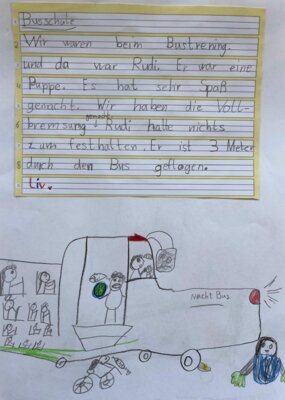 Busschule
Wir waren beim Bustrening.
und da war Rudi. Er war eine
Puppe. Es hat sehr Spaß
gemacht. Wir haben die Voll-
bremsung gemacht Rudi hatte nichts
zum festhalten. Er ist 3 Meter
durch den Bus geflogen.
Liv.
Nacht Bus